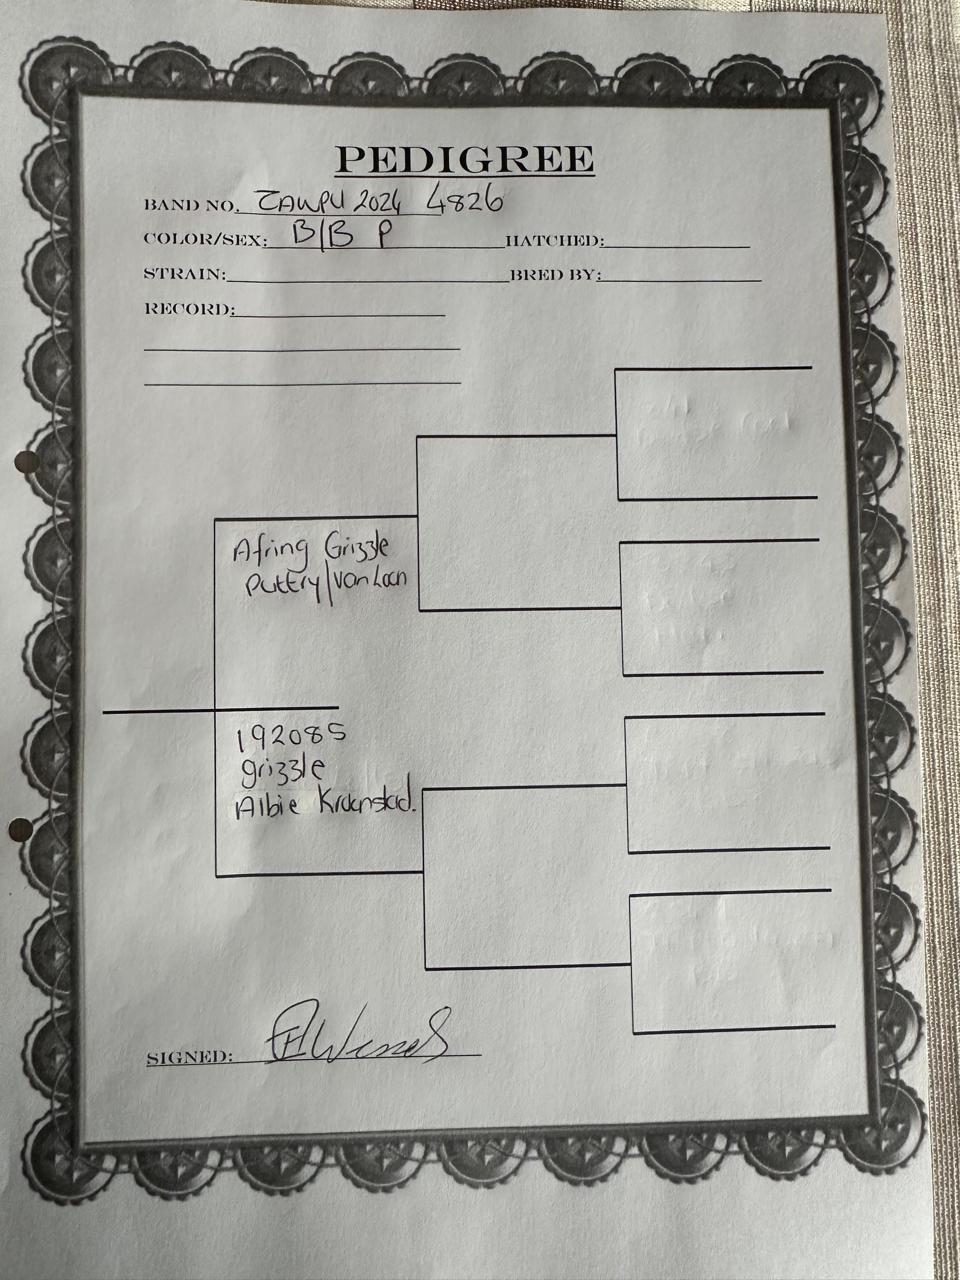 PEDIGREE
BAND NO. ZAWPU 2024 4826
COLOR/SEX: B/B P HATCHED:
STRAIN: BRED BY:
RECORD:
Afring Grizzle
Puttry/Van Loon
192085
grizzle
Albie Kroonstad.
SIGNED: